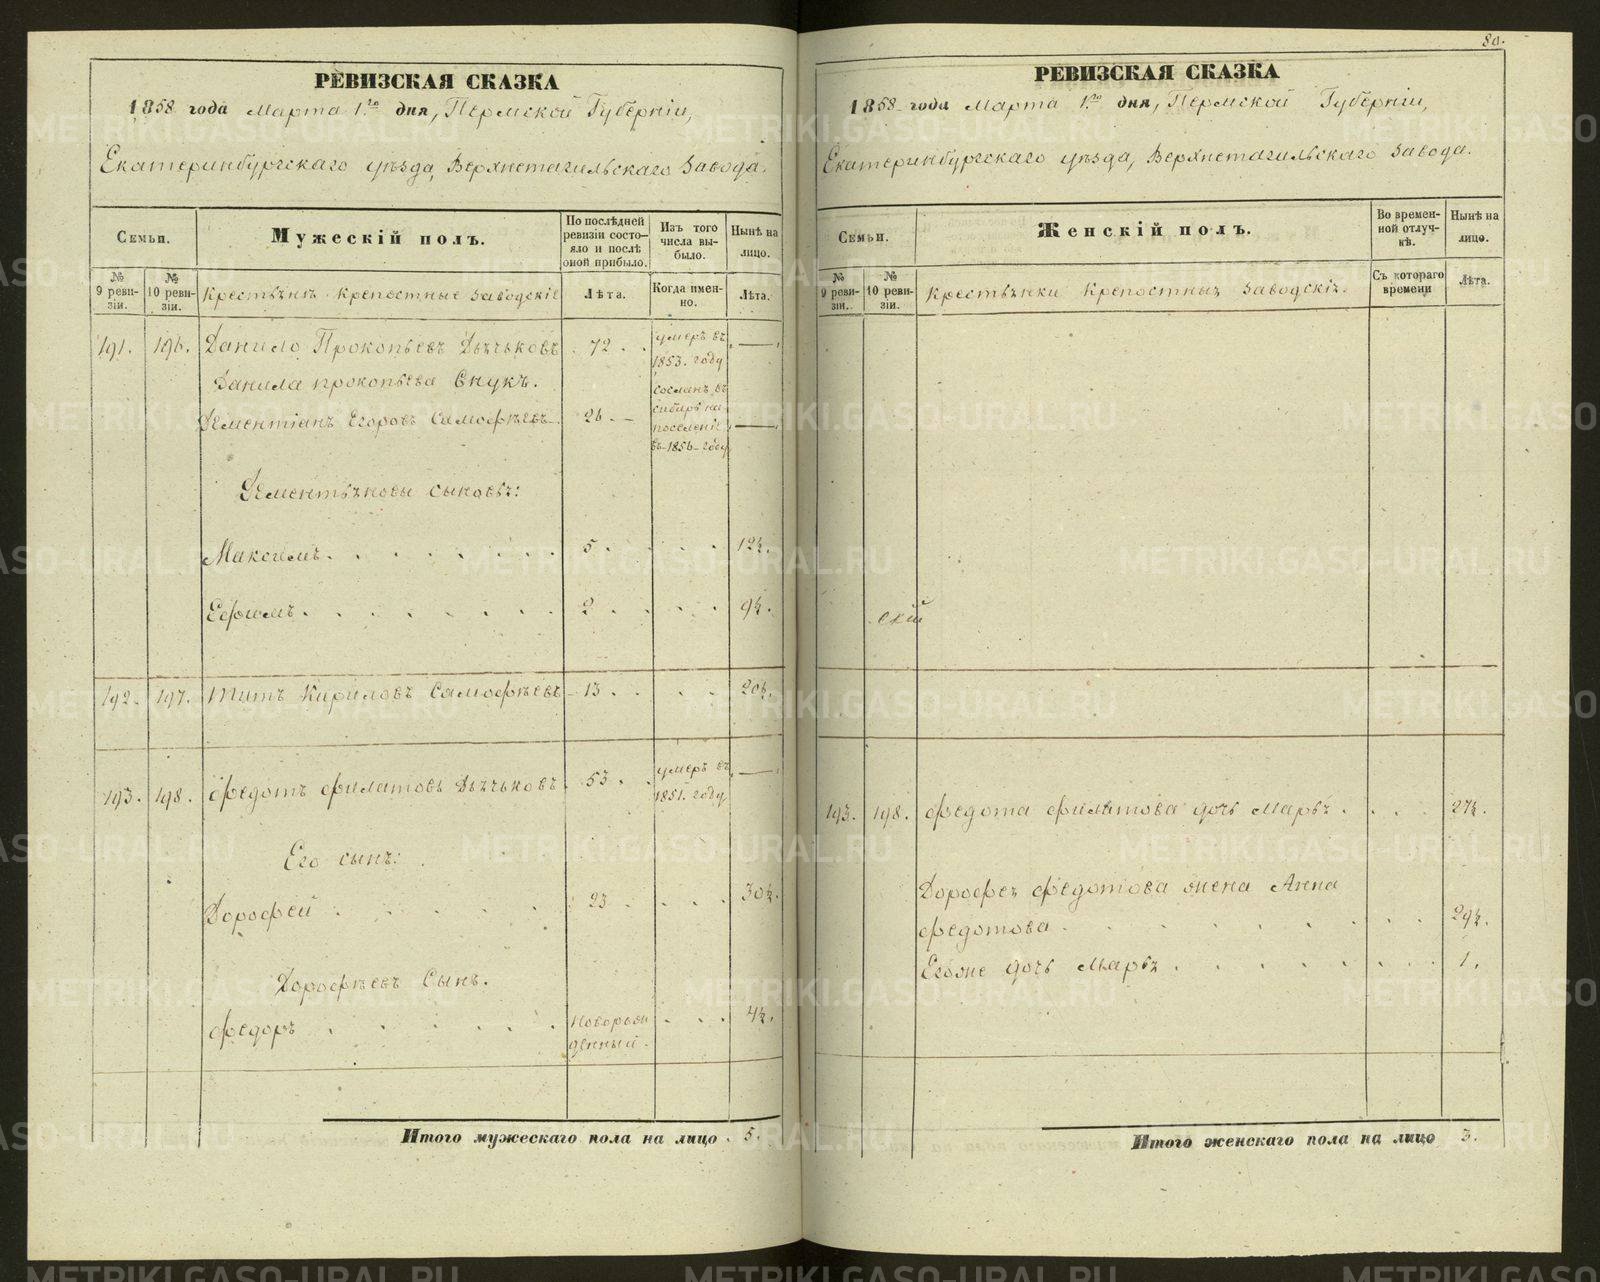 РЕВИЗСКАЯ СКАЗКА
1858 года Марта 1го дня, Пермской Губерніи,
Екатеринбургскаго уѣзда, Верхнетагильскаго Завода.
Семьи.
Мужескій полъ.
По послѣдней ревизіи состояло и послѣ оной прибыло.
Изъ того числа выбыло.
Нынѣ на лицо.
№ 9 ревизіи.
№ 10 ревизіи.
Крестьянѣ крепостные заводскіе
Лѣта.
Когда именно.
Лѣта.
191. 196. Данило Прокопьевъ Дьячковъ 72 умеръ въ 1853. году —
Данила прокопьева Внукъ.
Дементіанъ Егоровъ Самофѣевъ 26 сосланъ въ сибирь на поселеніе въ 1856 году —
Дементьяновы сыновья:
Максимъ. 5 12½.
Ефимъ. 2 9½.
192. 197. Титъ Кириловъ Самофѣевъ 13. 20½.
193. 198. Федотъ Филатовъ Дьячковъ 53. умеръ въ 1851. году —
Его сынъ:
Дорофей 23 30½.
Дорофѣевъ Сынъ.
Федоръ Новорожденный. 4½.
Итого мужескаго пола на лицо 5.
80.
РЕВИЗСКАЯ СКАЗКА
1858 года Марта 1го дня, Пермской Губерніи,
Екатеринбургскаго уѣзда, Верхнетагильскаго Завода.
Семьи.
Женскій полъ.
Во временной отлучкѣ.
Нынѣ на лицо.
№ 9 ревизіи.
№ 10 ревизіи.
Крестьянки крепостныя заводскія.
Съ котораго времени
Лѣта.
скій
193. 198. Федота Филатова дочь Марья 27½.
Дорофея Федотова жена Анна
Федотова 29½.
Егоже дочь Марья 1.
Итого женскаго пола на лицо 3.
METRIKI.GASO-URAL.RU